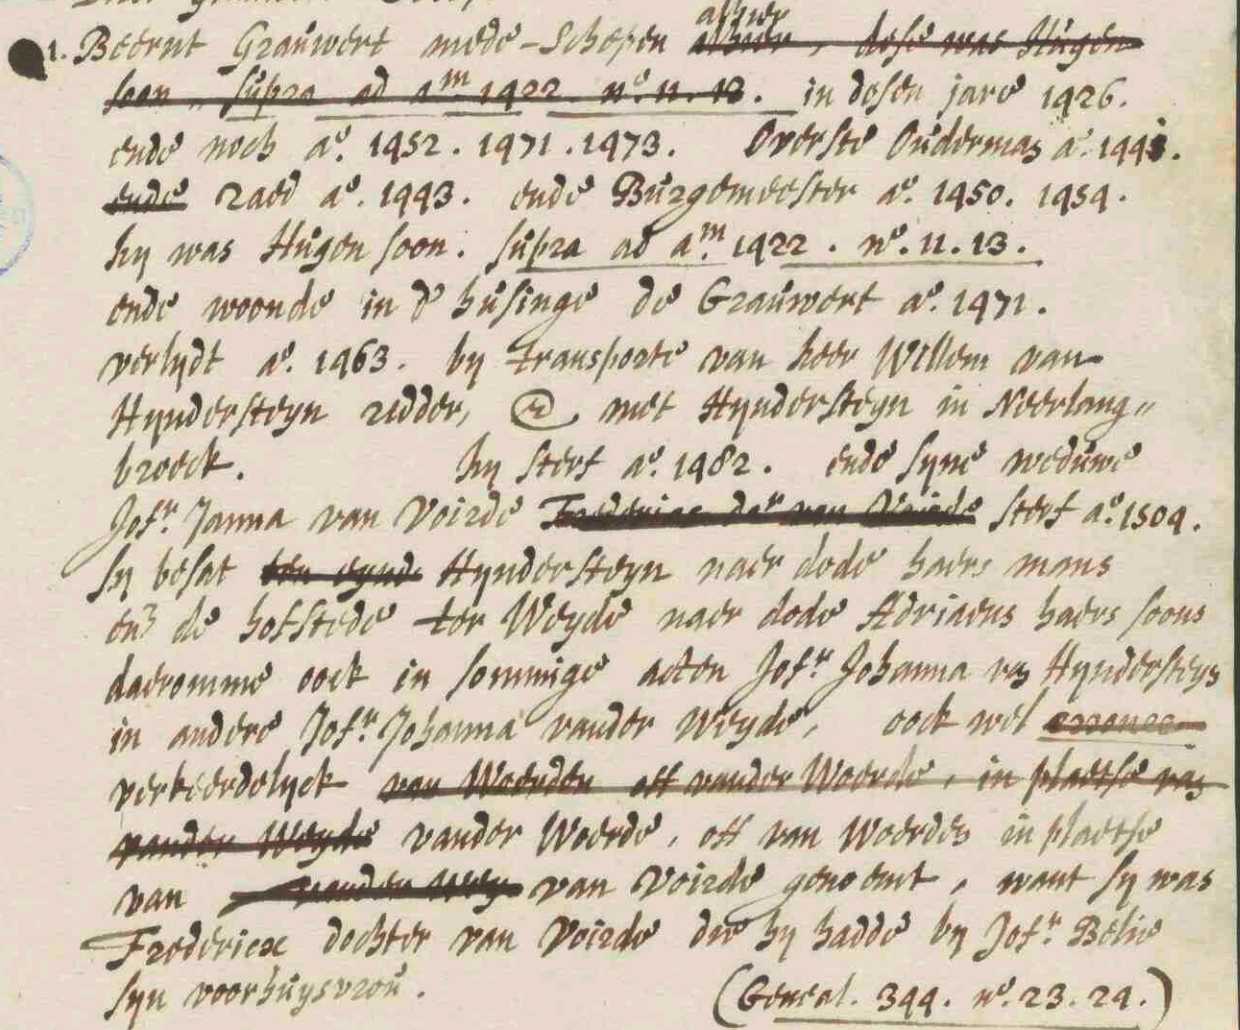 alhier
1. Beernt Graüwert mede-Schepen alhier, dese was Hügen
soon, süpra ad am 1422 no. 11. 13. in desen jare 1426.
ende noch ao. 1452. 1471. 1473. Overste Oüderman ao. 1441.
ende raed ao. 1443. ende Bürgemeester ao. 1450. 1454.
hy was Hügen soon. süpra ad am. 1422. no. 11. 13.
ende woonde in d' hüsinge de Graüwert ao. 1471.
verlydt ao. 1463. by transporte van heer Willem van
Hyndersteyn ridder, met Hyndersteyn in Neerlang„
broeck. hy sterf ao. 1482. ende syne wedüwe
Jofr. Janna van Voirde Frederics dor van Voirde sterf ao. 1504.
sy besat ten eynde Hyndersteyn naer dode haers mans
en de hofstede ter Weyde naer dode Adriaens haers soons
daeromme oock in sommige acten Jofr. Johanna van Hyndersteyn
in andere Jofr. Johanna vander Weyde, oock wel
verkeerdelyck van Woerden off vander Woerde, in plaetse van
vander Weyde vander Woerde, off van Woerden in plaetse
van vander Wey van Voirde genoemt, want sy was
Fredericx dochter van Voirde die hy hadde by Jofr. Belie
syn voorhüysvroü.
(Geneal. 344. no. 23. 24.)